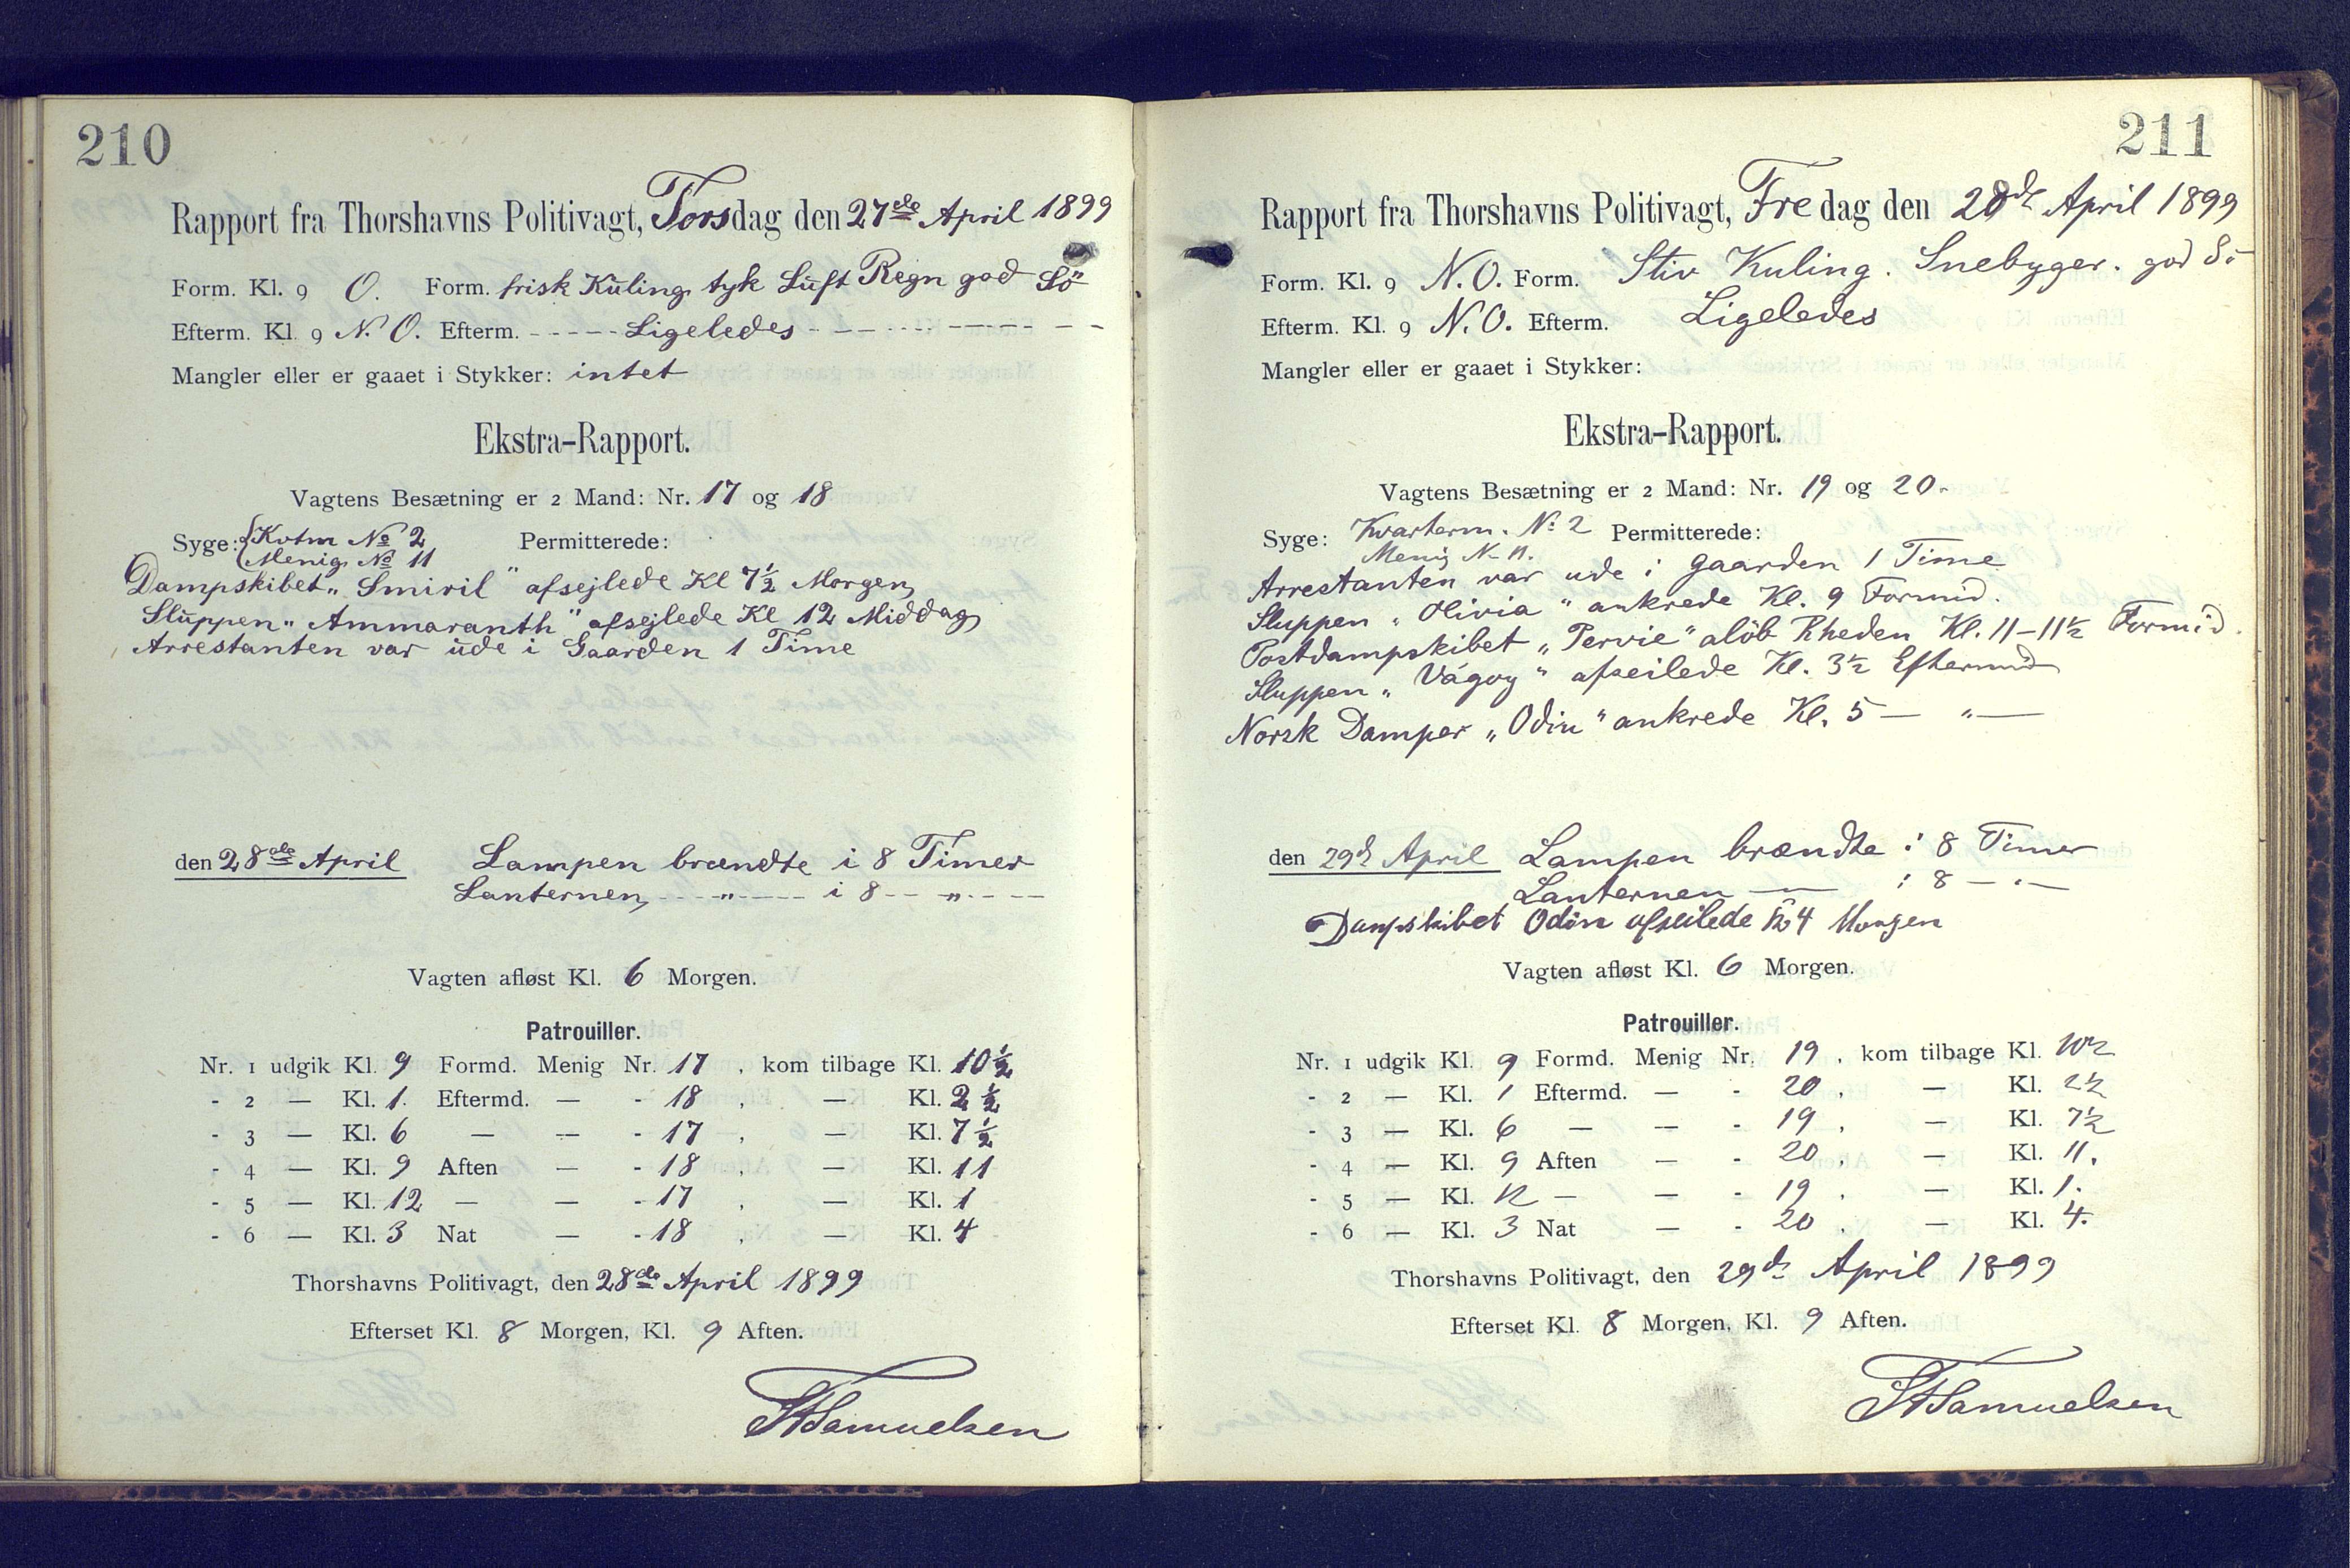 210
Rapport fra Thorshavns Politivagt, Torsdag den 27de April 1899
Form. Kl. 9 O. Form. frisk Kuling tyk Luft Regn god Sö
Efterm. Kl. 9 N. O. Efterm. - - - - - Ligeledes - - - - - - - -
Mangler eller er gaaet i Stykker: intet
Ekstra-Rapport.
Vagtens Besætning er 2 Mand: Nr. 17 og 18
Syge: {Kvtm No 2 Permitterede:
Menig No 11
Dampskibet „Smiril" afsejlede Kl 7½ Morgen
Sluppen „Ammaranth" afsejlede Kl 12 Middag
Arrestanten var ude i Gaarden 1 Time
den 28de April Lampen brændte i 8 Timer
Lanternen, - - - " - - - i 8 - - " - - -
Vagten afløst Kl. 6 Morgen.
Patrouiller.
Nr. 1 udgik Kl. 9 Formd. Menig Nr. 17, kom tilbage Kl. 10½
- 2 — Kl. 1. Eftermd. — - 18, — Kl. 2½
- 3 — Kl. 6 — — - 17, — Kl. 7½
- 4 — Kl. 9 Aften — - 18, — Kl. 11
- 5 — Kl. 12 — — - 17, — Kl. 1
- 6 — Kl. 3 Nat — - 18, — Kl. 4
Thorshavns Politivagt, den 28de April 1899
Efterset Kl. 8 Morgen, Kl. 9 Aften.
Samuelsen
211
Rapport fra Thorshavns Politivagt, Fredag den 28de April 1899
Form. Kl. 9 N. O. Form. Stiv Kuling. Snebyger. god Sö
Efterm. Kl. 9 N. O. Efterm. Ligeledes
Mangler eller er gaaet i Stykker:
Ekstra-Rapport.
Vagtens Besætning er 2 Mand: Nr. 19 og 20.
Syge: Kvarterm. No 2 Permitterede:
Menig N. 11.
Arrestanten var ude i Gaarden 1 Time
Sluppen „Olivia" ankrede Kl. 9 Formid.
Postdampskibet „Pervie" alöb Rheden Kl. 11-11½ Formid.
Sluppen „Vágoy" afseilede Kl. 3½ Eftermid
Norsk Damper „Odin" ankrede Kl. 5 — " —
den 29de April Lampen brændte i 8 Timer
Lanternen — i 8 — " —
Dampskibet Odin afseilede Kl 4 Morgen
Vagten afløst Kl. 6 Morgen.
Patrouiller.
Nr. 1 udgik Kl. 9 Formd. Menig Nr. 19, kom tilbage Kl. 10½
- 2 — Kl. 1 Eftermd. — - 20, — Kl. 2½
- 3 — Kl. 6 — — - 19, — Kl. 7½
- 4 — Kl. 9 Aften — - 20, — Kl. 11.
- 5 — Kl. 12 — — - 19, — Kl. 1.
- 6 — Kl. 3 Nat — - 20, — Kl. 4.
Thorshavns Politivagt, den 29de April 1899
Efterset Kl. 8 Morgen, Kl. 9 Aften.
Samuelsen